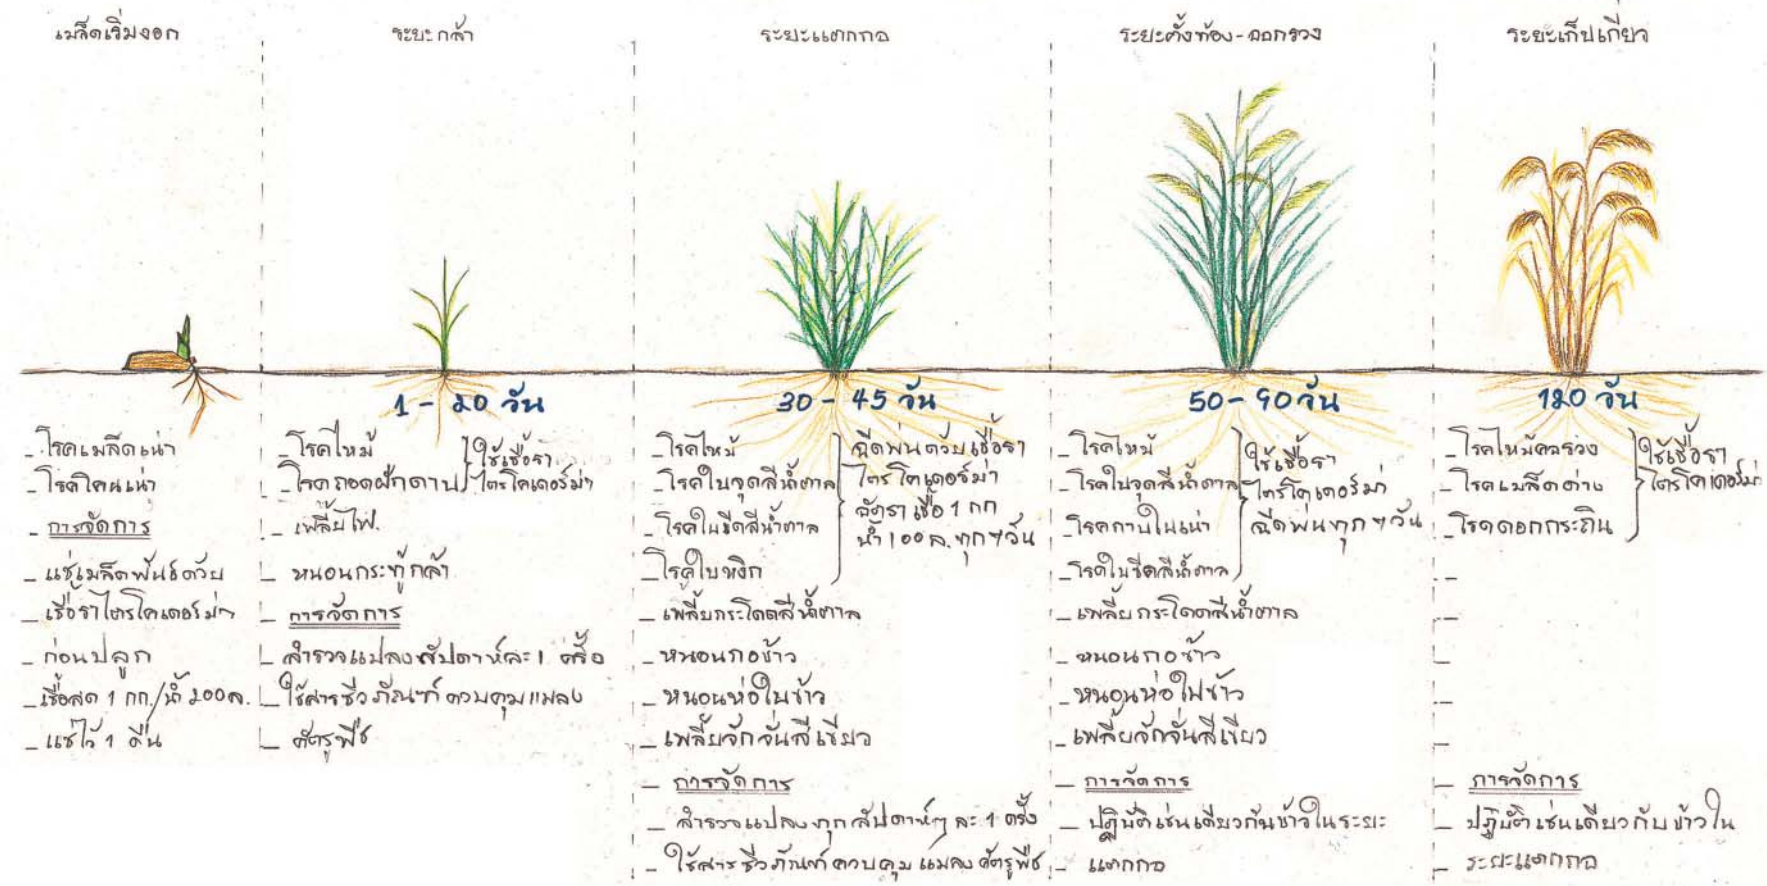 เมล็ดเริ่มงอก
- โรคเมล็ดเน่า
- โรคโคนเน่า
- การจัดการ
- แช่เมล็ดพันธ์ด้วย
- เชื้อราไตรโคเดอร์ม่า
- ก่อนปลูก
- เชื้อสด 1 กก./น้ำ 200 ล.
- แช่ไว้ 1 คืน
ระยะกล้า
1 - 20 วัน
- โรคไหม้
- โรคถอดฝักดาบ
ใช้เชื้อรา
ไตรโคเดอร์ม่า
- เพลี้ยไฟ.
- หนอนกระทู้กล้า
- การจัดการ
- สำรวจแปลงสัปดาห์ละ 1 ครั้ง
- ใช้สารชีวภัณฑ์ควบคุมแมลง
- ศัตรูพืช
ระยะแตกกอ
30 - 45 วัน
- โรคไหม้
- โรคใบจุดสีน้ำตาล
- โรคใบขีดสีน้ำตาล
- โรคใบหงิก
ฉีดพ่นด้วยเชื้อรา
ไตรโคเดอร์ม่า
อัตราเชื้อ 1 กก
น้ำ 100 ล. ทุก 7 วัน
- เพลี้ยกระโดดสีน้ำตาล
- หนอนกอข้าว
- หนอนห่อใบข้าว
- เพลี้ยจักจั่นสีเขียว
- การจัดการ
- สำรวจแปลงทุกสัปดาห์ๆ ละ 1 ครั้ง
- ใช้สารชีวภัณฑ์ควบคุมแมลงศัตรูพืช
ระยะตั้งท้อง - ออกรวง
50 - 90 วัน
- โรคไหม้
- โรคใบจุดสีน้ำตาล
- โรคกาบใบเน่า
- โรคใบขีดสีน้ำตาล
ใช้เชื้อรา
ไตรโคเดอร์ม่า
ฉีดพ่นทุก 7 วัน
- เพลี้ยกระโดดสีน้ำตาล
- หนอนกอข้าว
- หนอนห่อใบข้าว
- เพลี้ยจักจั่นสีเขียว
- การจัดการ
- ปฏิบัติเช่นเดียวกันข้าวในระยะ
- แตกกอ
ระยะเก็บเกี่ยว
120 วัน
- โรคไหม้คอรวง
- โรคเมล็ดด่าง
- โรคดอกกระถิน
ใช้เชื้อรา
ไตรโคเดอร์ม่า
- การจัดการ
- ปฏิบัติเช่นเดียวกับข้าวใน
- ระยะแตกกอ